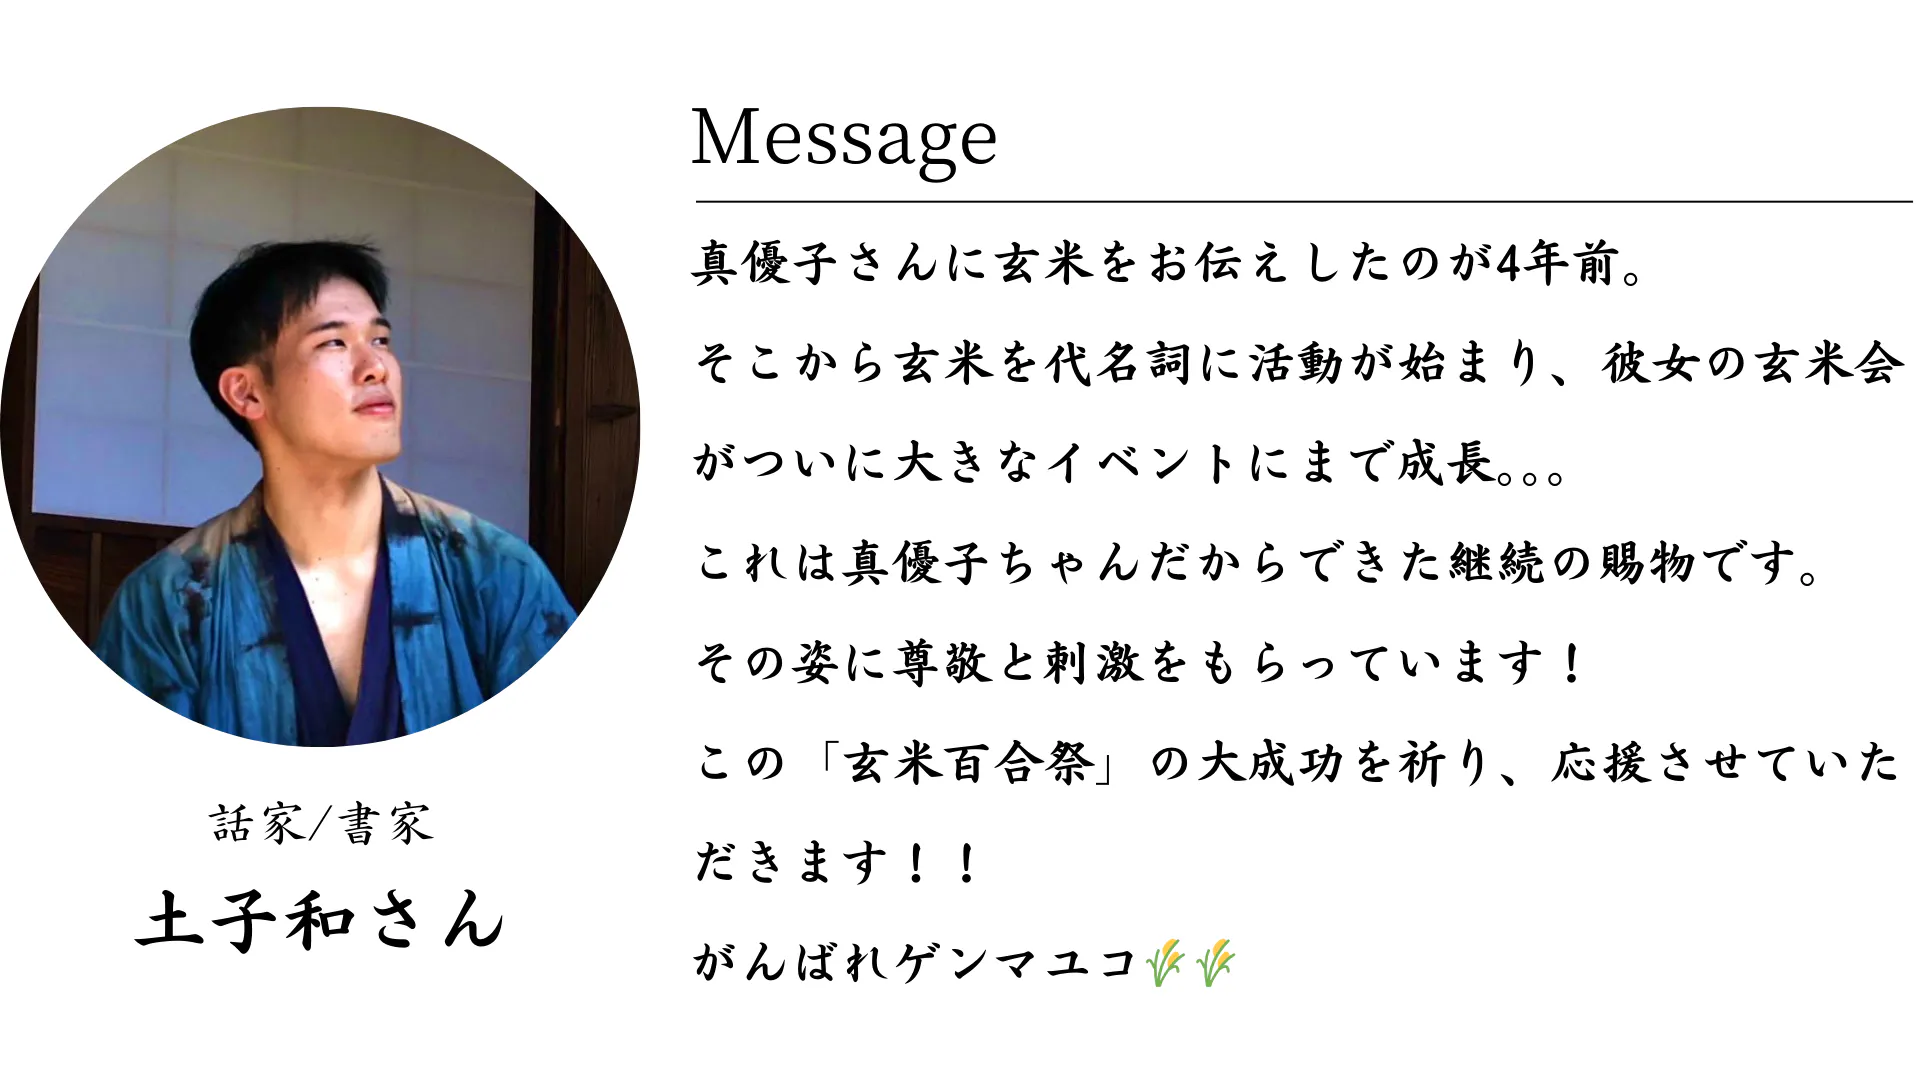 Message
真優子さんに玄米をお伝えしたのが4年前。
そこから玄米を代名詞に活動が始まり、彼女の玄米会
がついに大きなイベントにまで成長。。。
これは真優子ちゃんだからできた継続の賜物です。
その姿に尊敬と刺激をもらっています！
この「玄米百合祭」の大成功を祈り、応援させていた
だきます！！
がんばれゲンマユコ🌾🌾
話家/書家
土子和さん